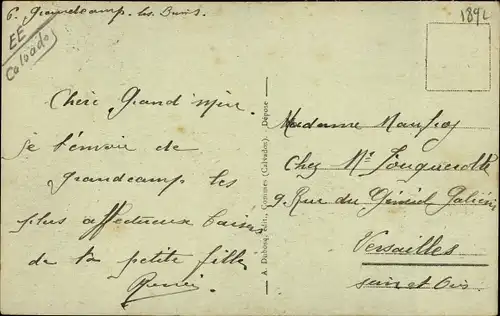 6. Grandcamp-les-Bains.
EE
Calvados
189
Chère Grand'mère
je t'envoie de
Grandcamp les
plus affectueux baisers
de ta petite fille
Renée
A. Dubosq, édit., Commes (Calvados). Déposé
Madame
Chez Mr
9 Rue du Général Galliéni
Versailles
Seine et Oise